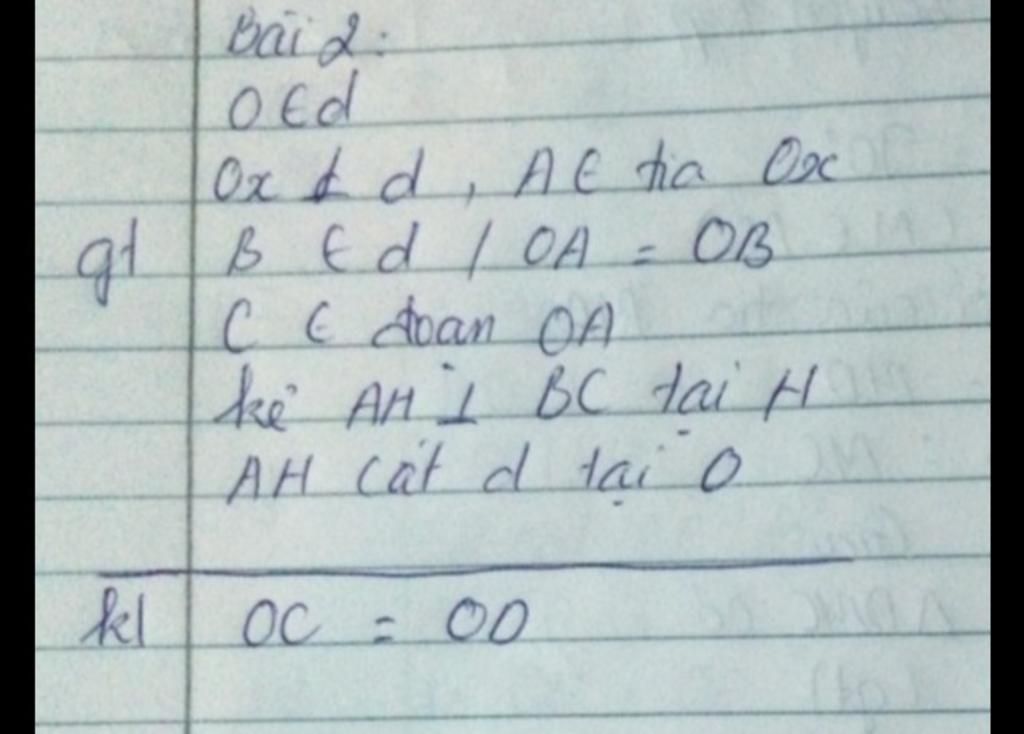 Bài 2:
O ∈ d
Ox ⊥ d, A ∈ tia Ox
gt B ∈ d / OA = OB
C ∈ đoạn OA
kẻ AH ⊥ BC tại H
AH cắt d tại D
kl OC = OD